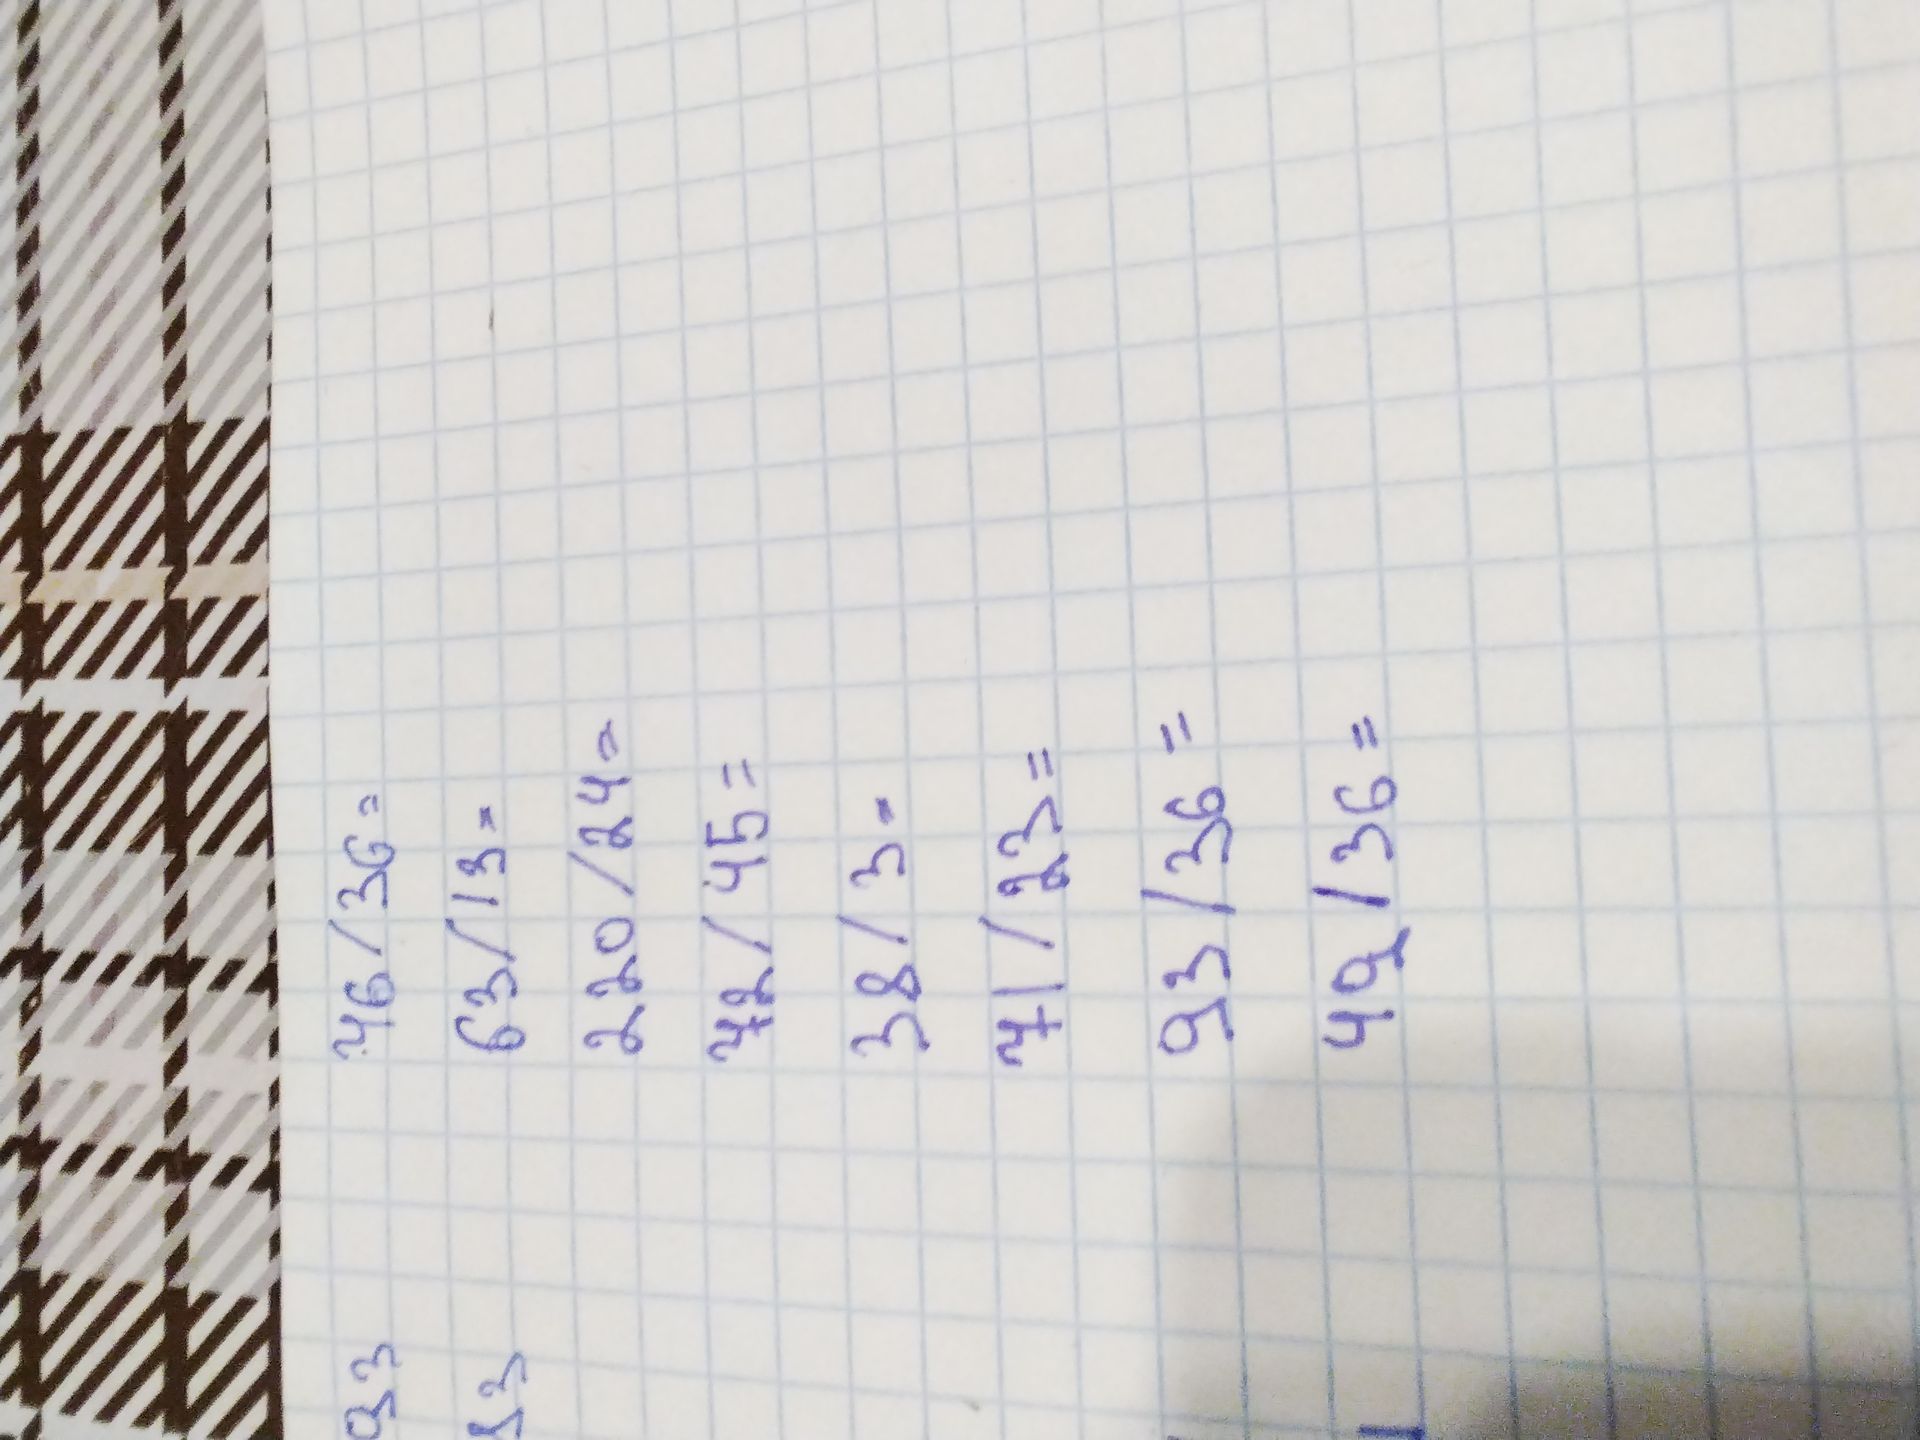 93 46/36=
63/13=
220/24=
72/45=
38/3=
71/23=
93/36=
49/36=